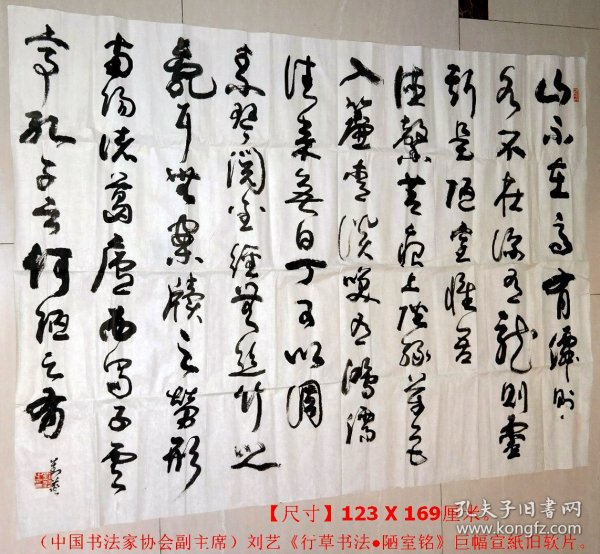 山不在高有仙则
名水不在深有龙则灵
斯是陋室惟吾
德馨苔痕上阶绿草色
入帘青谈笑有鸿儒
往来无白丁可以调
素琴阅金经无丝竹之
乱耳无案牍之劳形
南阳诸葛庐西蜀子云
亭孔子云何陋之有
刘艺
【尺寸】123 X 169厘米。
(中国书法家协会副主席)刘艺《行草书法●陋室铭》巨幅宣纸旧软片。
孔夫子旧书网
kongfz.com